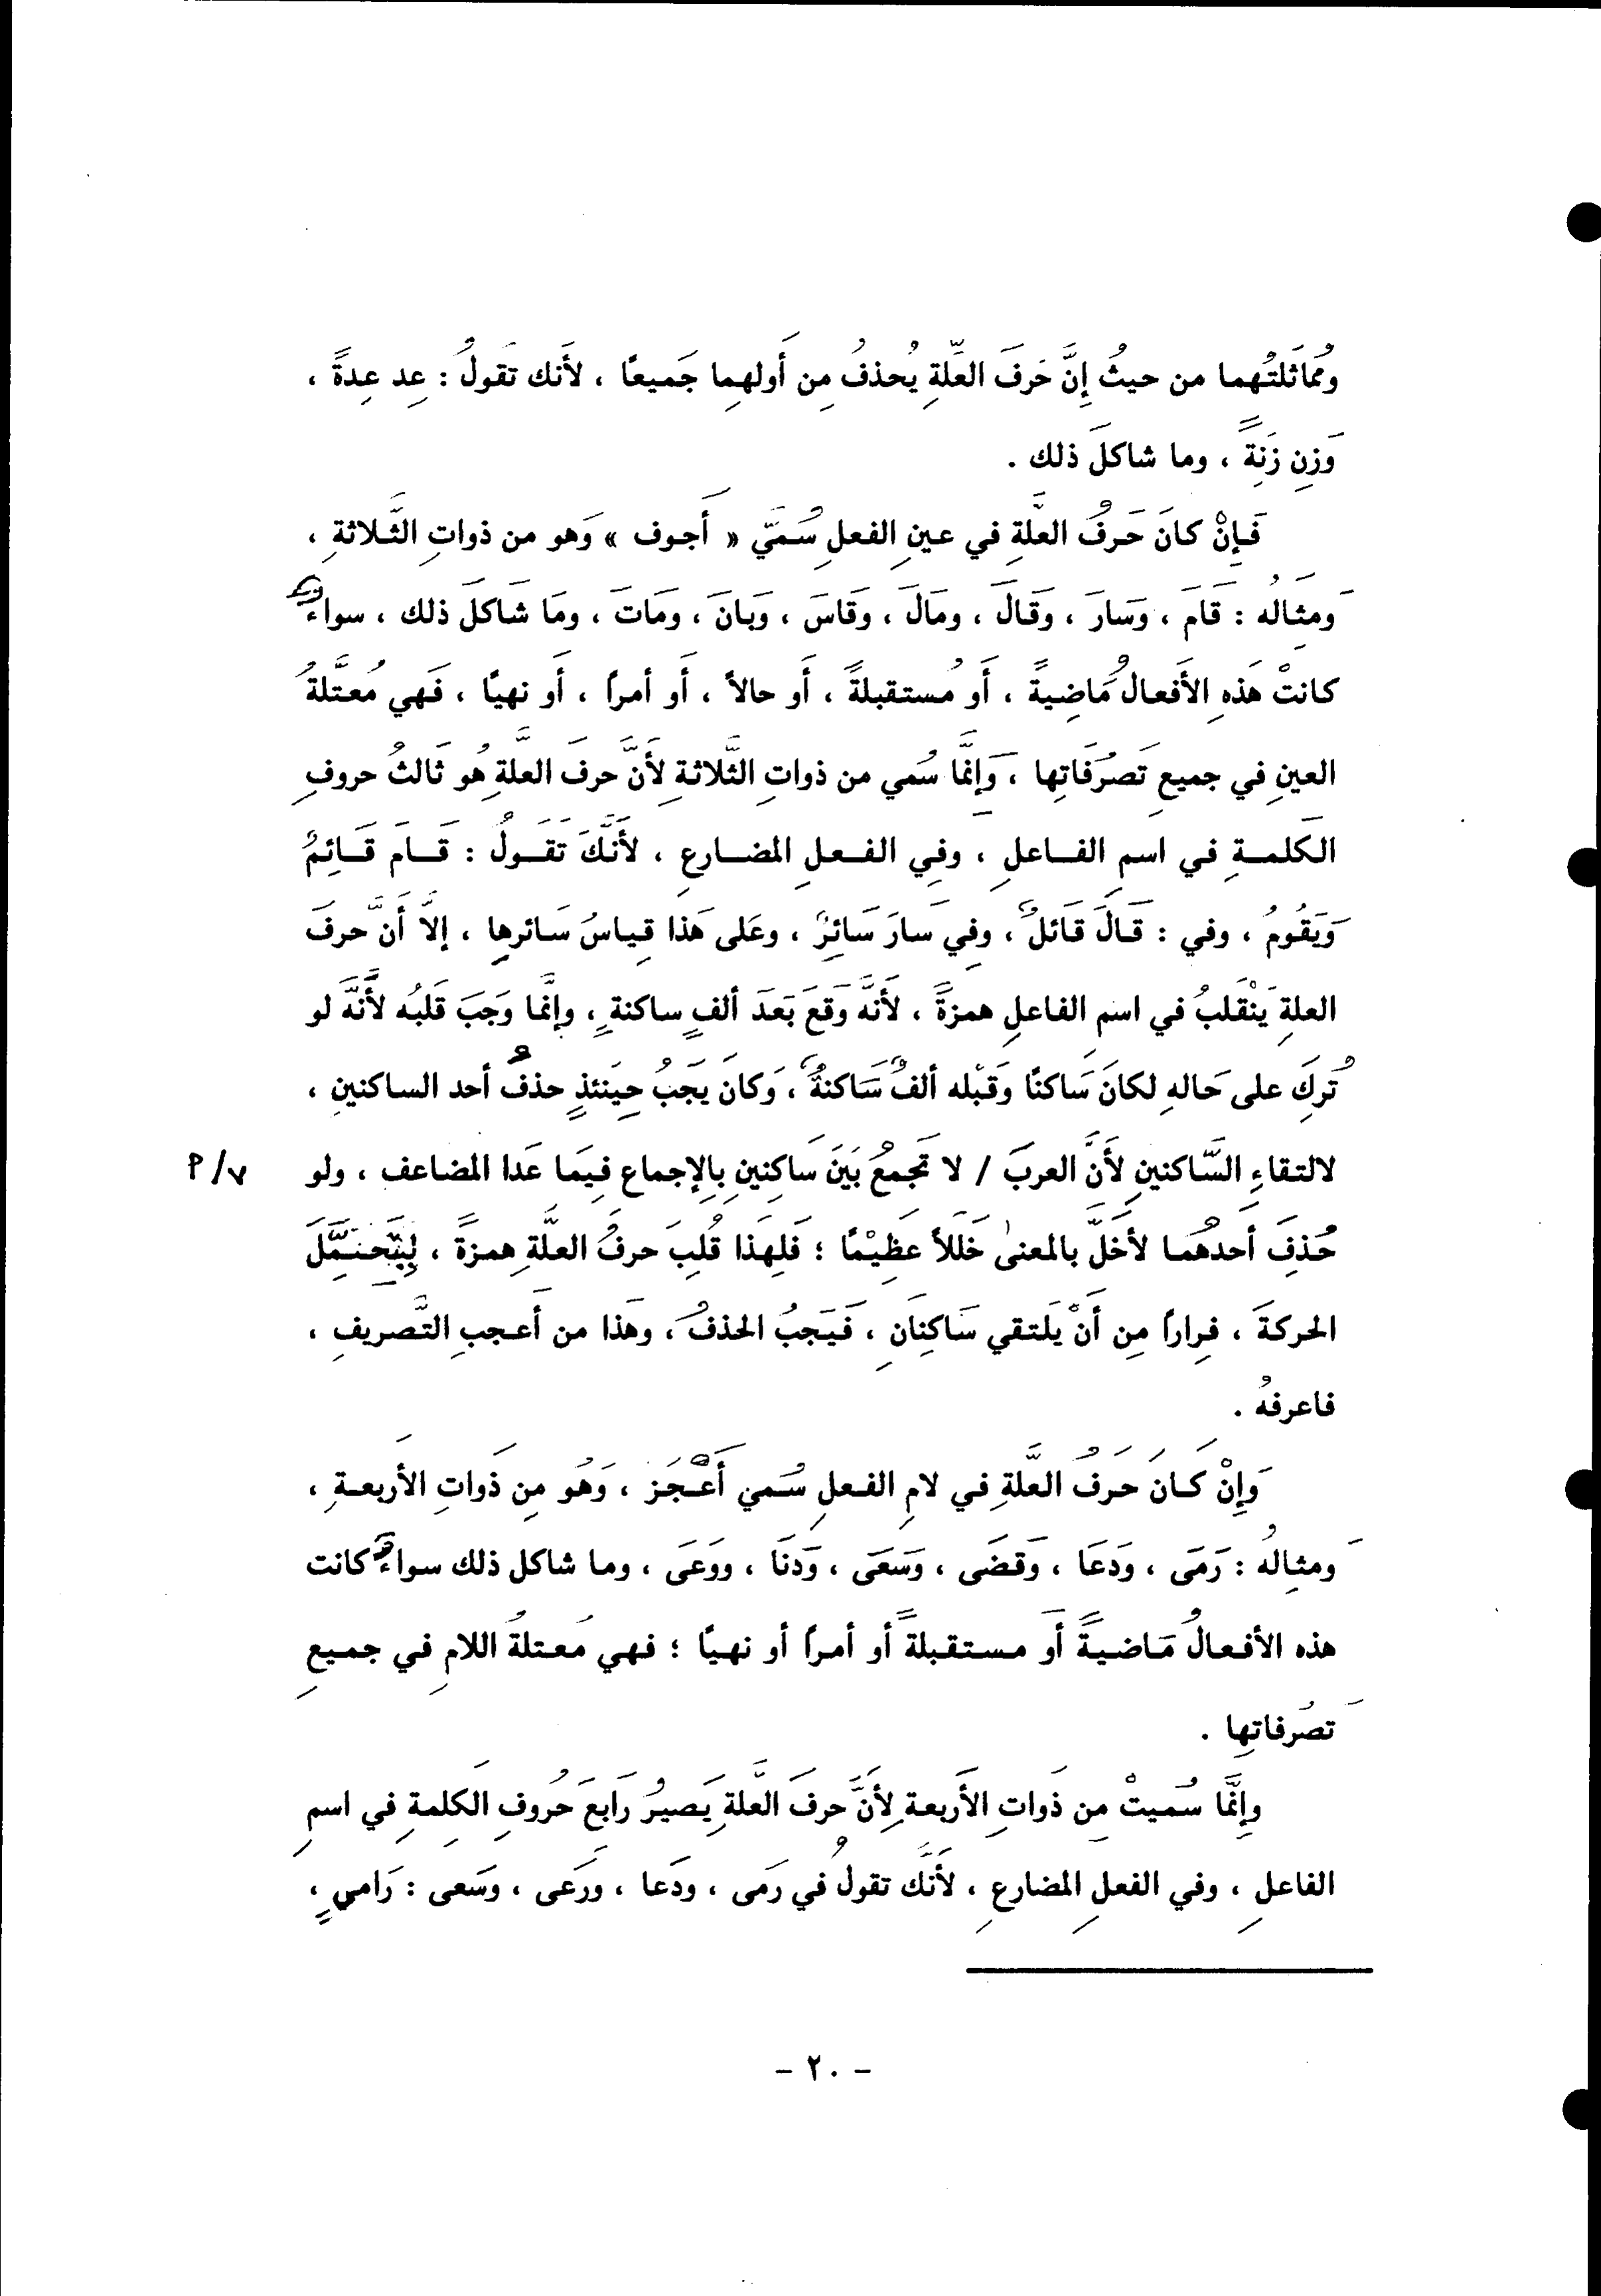 ومُماثَلتُهما من حيثُ إِنَّ حَرفَ العلَّةِ يُحذفُ مِن أَولهِما جَميعًا ، لأَنك تَقولُ : عِد عِدةً ،
وَزِن زَنِةً ، وما شاكلَ ذلك .
فَإِنْ كانَ حَرفُ العلَّةِ في عينِ الفعلِ سُمّيَ « أَجوف » وَهو من ذواتِ الثَّلاثةِ ،
ومثِالُه : قَامَ ، وَسَارَ ، وَقَالَ ، ومَالَ ، وَقَاسَ ، وَبَانَ ، ومَاتَ ، ومَا شَاكلَ ذلك ، سواءٌ
كانتْ هَذهِ الأَفعالُ مَاضِيةً ، أَو مُستقبلةً ، أَو حالاً ، أَو أمراً ، أَو نهيًا ، فَهي مُعتَّلةُ
العينِ في جميعِ تَصرُفَاتِها ، وَإنَّما سُمي من ذواتِ الثَّلاثةِ لأَنَّ حرفَ العلَّةِ هُو ثَالثُ حروفِ
الكَلمةِ في اسمِ الفاعلِ ، وفِي الفعلِ المضارعِ ، لأَنَّكَ تَقَولُ : قَامَ قَائِمٌ
وَيَقُومُ ، وفي : قَالَ قَائلٌ ، وفِي سارَ سَائِرٌ ، وعَلى هَذا قياسُ سَائرهِا ، إلاَّ أَنَّ حرفَ
العلةِ يَنْقَلبُ في اسم الفاعلِ همزةً ، لأَنَّه وَقعَ بَعَدَ ألفٍ ساكنةٍ ، وإنَّما وَجَبَ قَلبُه لأَنَّهَ لو
تُركَ على حَالهِ لكانَ سَاكنًا وَقَبْله ألفٌ سَاكنةٌ ، وَكانَ يَجَبُ حِيَنئذٍ حذفُ أحد الساكنينِ ،
لالتقاءِ السَّاكنينِ لأَنَّ العربَ / لا تَجمعُ بَيَنَ سَاكِنينِ بِالإجماعِ فيمَا عَدا المضاعف ، ولو
٧/م
حُذفِ أحدهُما لأخَلَّ بالمعنىٰ خَللاً عَظِيْمًا ؛ فَلِهَذا قُلِبَ حرفُ العلَّةِ همزةً ، لِيَتَّحَمَّلَ
الحركةَ ، فِراراً مِن أَنْ يَلتقي سَاكِنَانِ ، فَيَجَبُ الحذفُ ، وهَذا من أَعجبِ التَّصريفِ ،
فاعرفهُ .
وَإِنْ كَانَ حَرفُ العلَّةِ في لامِ الفعلِ سُمي أَعْجَز ، وَهُو مِن ذَواتِ الأَربعةِ ،
ومثِالهُ : رَمَى ، وَدعَا ، وَقضَى ، وَسَعَى ، وَدنَا ، ووَعَى ، وما شاكل ذلك سواءٌ كانت
هذه الأفعالُ مَاضيةً أَو مستقبلةً أو أمراً أو نهيًا ؛ فهي مُعتلةُ اللامِ في جميعِ
تصرُفاتهِا .
وإِنَّما سُميتْ مِن ذَواتِ الأَربعةِ لِأَنَّ حرفَ العَّلةِ يَصيرُ رَابعَ حُروفِ الكَلِمةِ في اسمِ
الفاعلِ ، وفي الفعلِ المضارعِ ، لأَنَّك تقولُ في رَمى ، ودَعا ، ورَعَى ، وسَعى : رَاميٍ ،
- ٢٠ -